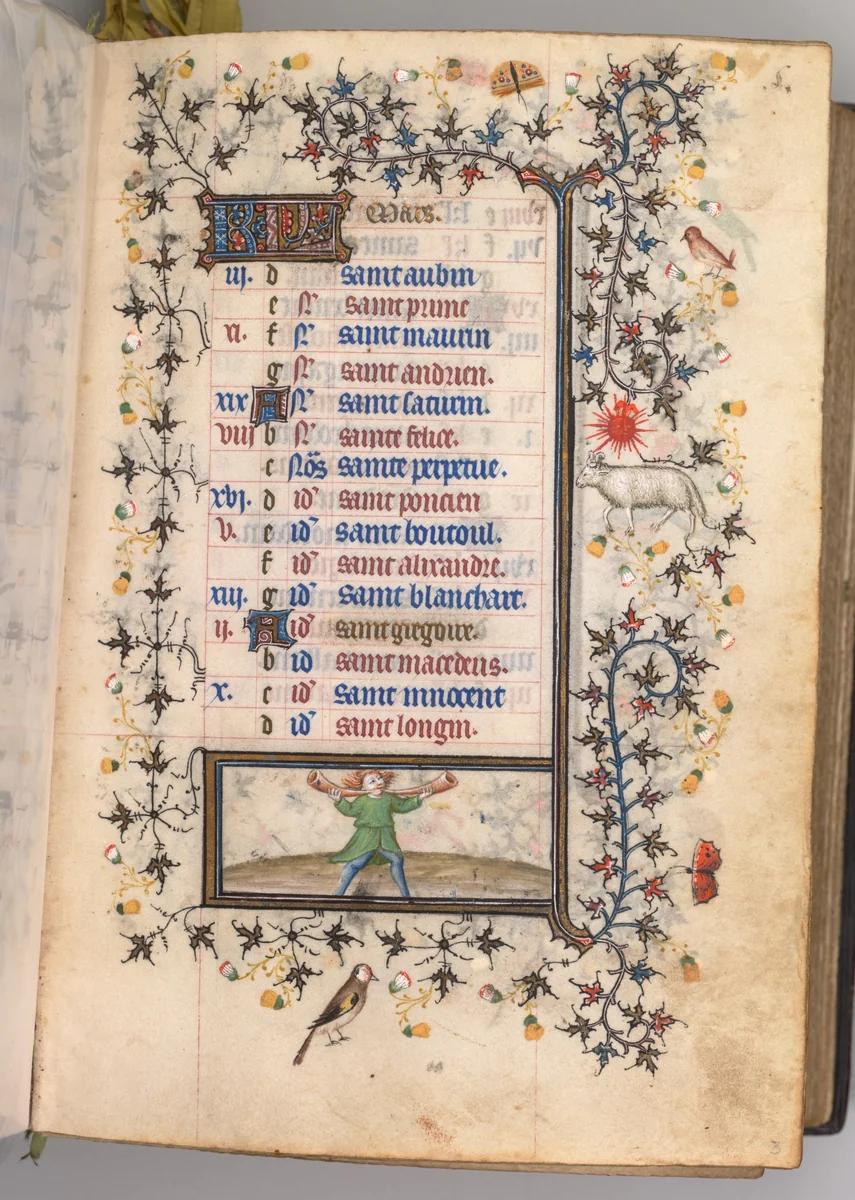 KL Mars.
iii. d saint aubin
e N saint prime
vi. f N saint maurin
g N saint andrien.
xix A N saint saturin.
viii b N sainte felice.
c Nõs sainte perpetue.
xvi. d id saint poncien
v. e id saint boutoul.
f id saint alixandre.
xiii. g id saint blanchart.
ii. A id saint gregoire.
b id saint macedeus.
x. c id saint innocent
d id saint longin.
3